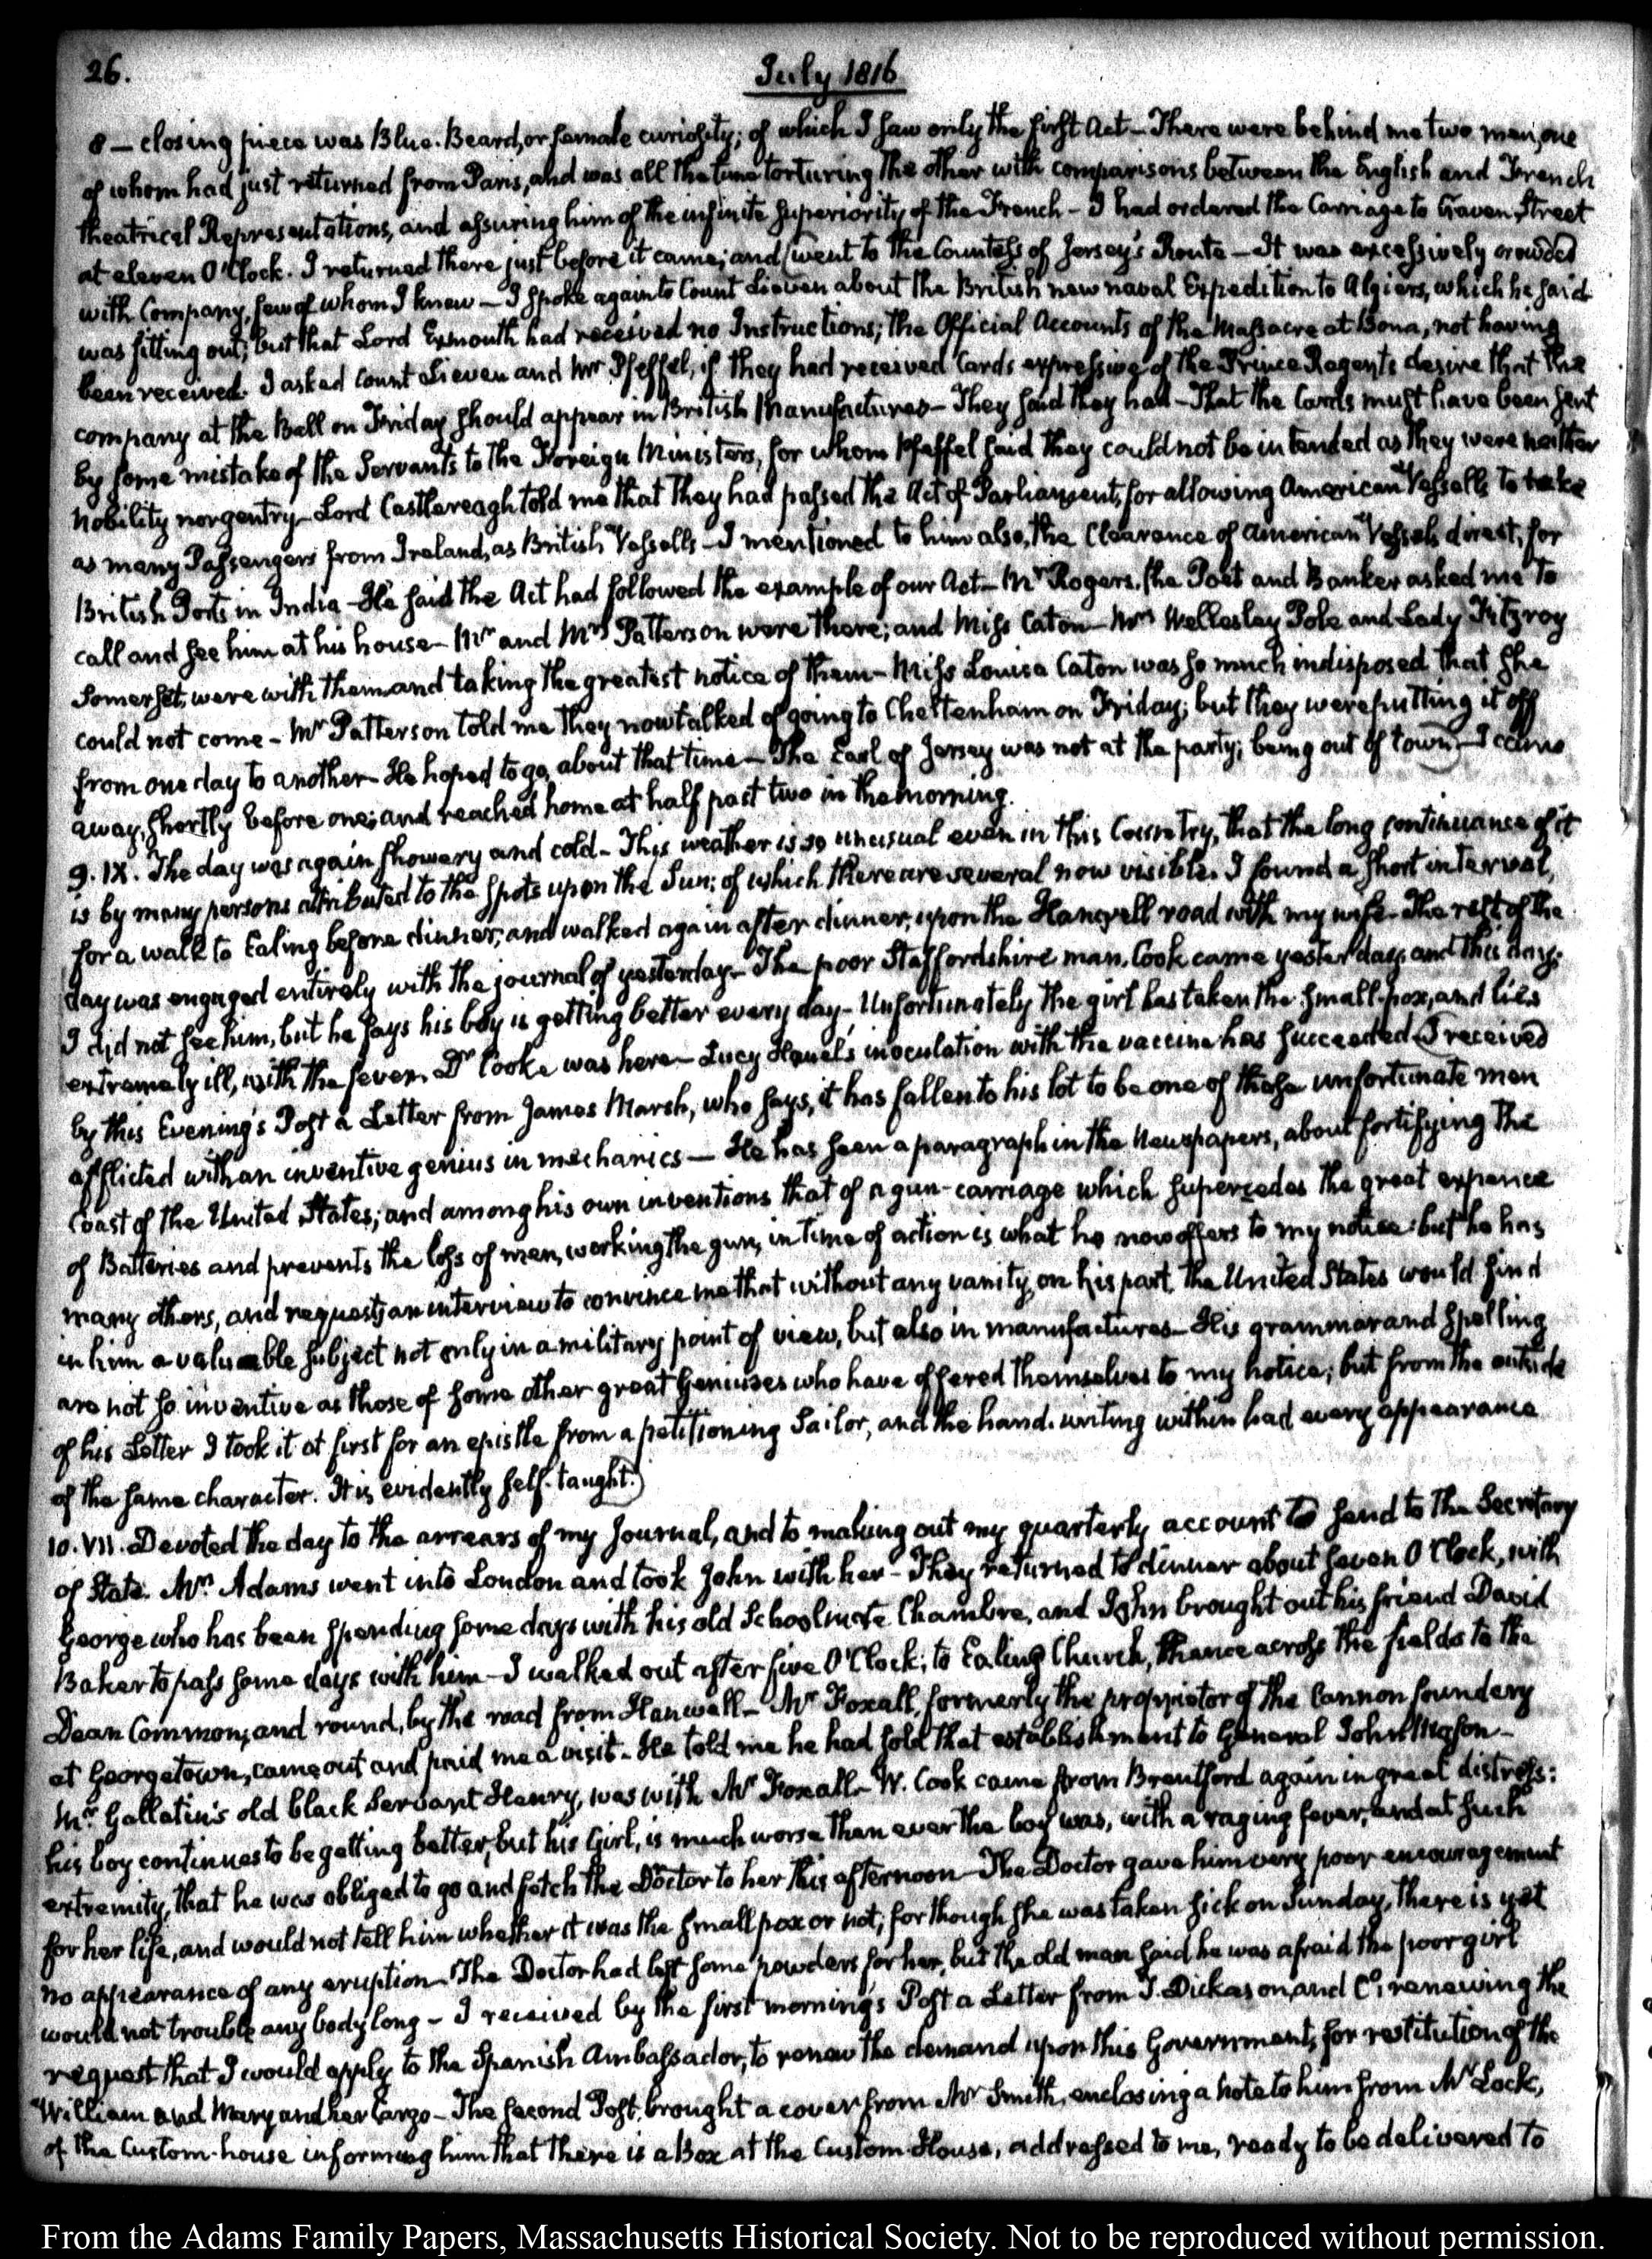 26.
July 1816
8 — closing piece was Blue-Beard, or female curiosity; of which I saw only the first Act — There were behind me two men, one
of whom had just returned from Paris, and was all the time torturing the other with comparisons between the English and French
theatrical Representations, and assuring him of the infinite superiority of the French — I had ordered the Carriage to Craven Street
at eleven O'Clock. I returned there just before it came; and went to the Countess of Jersey's Route — It was excessively crowded
with Company, few of whom I knew — I spoke again to Count Lieven about the British new naval Expedition to Algiers, which he said
was fitting out; but that Lord Exmouth had received no Instructions; the Official Accounts of the Massacre at Bona, not having
been received. I asked Count Lieven and Mr Pfeffel, if they had received Cards expressive of the Prince Regent's desire that the
company at the Ball on Friday should appear in British Manufactures — They said they had — That the Cards must have been sent
by some mistake of the Servants to the Foreign Ministers, for whom Pfeffel said they could not be intended as they were neither
nobility nor gentry — Lord Castlereagh told me that they had passed the Act of Parliament, for allowing American Vessells to take
as many Passengers from Ireland, as British Vessells — I mentioned to him also, the Clearance of American Vessels direct, for
British Ports in India — He said the Act had followed the example of our Act — Mr Rogers, the Poet and Banker asked me to
call and see him at his house — Mr and Mrs Patterson were there; and Miss Caton — Mrs Wellesley Pole and Lady Fitzroy
Somerset, were with them and taking the greatest notice of them — Miss Louisa Caton was so much indisposed that she
could not come — Mr Patterson told me they now talked of going to Cheltenham on Friday; but they were putting it off
from one day to another — He hoped to go, about that time — The Earl of Jersey was not at the party; being out of town — I came
away, shortly before one; and reached home at half past two in the morning.
9. IX. The day was again showery and cold — This weather is so unusual even in this Country, that the long continuance of it
is by many persons attributed to the spots upon the Sun; of which there are several now visible. I found a short interval,
for a walk to Ealing before dinner; and walked again after dinner, upon the Hanwell road with my wife — The rest of the
day was engaged entirely with the journal of yesterday — The poor Staffordshire man, Cook came yesterday, and this day;
I did not see him, but he says his boy is getting better every day — Unfortunately the girl has taken the small-pox, and lies
extremely ill, with the fever. Dr Cooke was here — Lucy Houel's inoculation with the vaccine has succeeded — I received
by this Evening's Post a Letter from James Marsh, who says, it has fallen to his lot to be one of those unfortunate men
afflicted with an inventive genius in mechanics — He has seen a paragraph in the Newspapers, about fortifying the
Coast of the United States; and among his own inventions that of a gun-carriage which supercedes the great expence
of Batteries and prevents the loss of men, working the gun, in time of action is what he now offers to my notice: but he has
many others, and requests an interview to convince me that without any vanity, on his part, the United States would find
in him a valuable subject not only in a military point of view, but also in manufactures — His grammar and spelling
are not so inventive as those of some other great Geniuses who have offered themselves to my notice; but from the outside
of his Letter I took it at first for an epistle from a petitioning Sailor, and the hand-writing within had every appearance
of the same character. It is evidently self-taught.
10. VII. Devoted the day to the arrears of my Journal, and to making out my quarterly account to send to the Secretary
of State. Mrs Adams went into London and took John with her — They returned to dinner about seven O'Clock, with
George who has been spending some days with his old Schoolmate Chambre, and John brought out his friend David
Baker to pass some days with him — I walked out after five O'Clock; to Ealing Church, thence across the fields to the
Dean Common; and round, by the road from Hanwell — Mr Foxall, formerly the proprietor of the Cannon foundery
at Georgetown, came out and paid me a visit — He told me he had sold that establishment to General John Mason —
Mr Gallatin's old black Servant Henry, was with Mr Foxall — W. Cook came from Brentford again in great distress:
his boy continues to be getting better, but his Girl, is much worse than ever the boy was, with a raging fever, and at such
extremity, that he was obliged to go and fetch the Doctor to her this afternoon — The Doctor gave him very poor encouragement
for her life, and would not tell him whether it was the small pox or not; for though she was taken sick on Sunday, there is yet
no appearance of any eruption — The Doctor had left some powders for her, but the old man said he was afraid the poor girl
would not trouble any body long — I received by the first morning's Post a Letter from T. Dickason and Co. renewing the
request that I would apply to the Spanish Ambassador, to renew the demand upon this Government, for restitution of the
William and Mary and her Cargo — The second Post, brought a cover from Mr Smith, enclosing a note to him from Mr Lock,
of the Custom-house informing him that there is a Box at the Custom House, addressed to me, ready to be delivered to
From the Adams Family Papers, Massachusetts Historical Society. Not to be reproduced without permission.